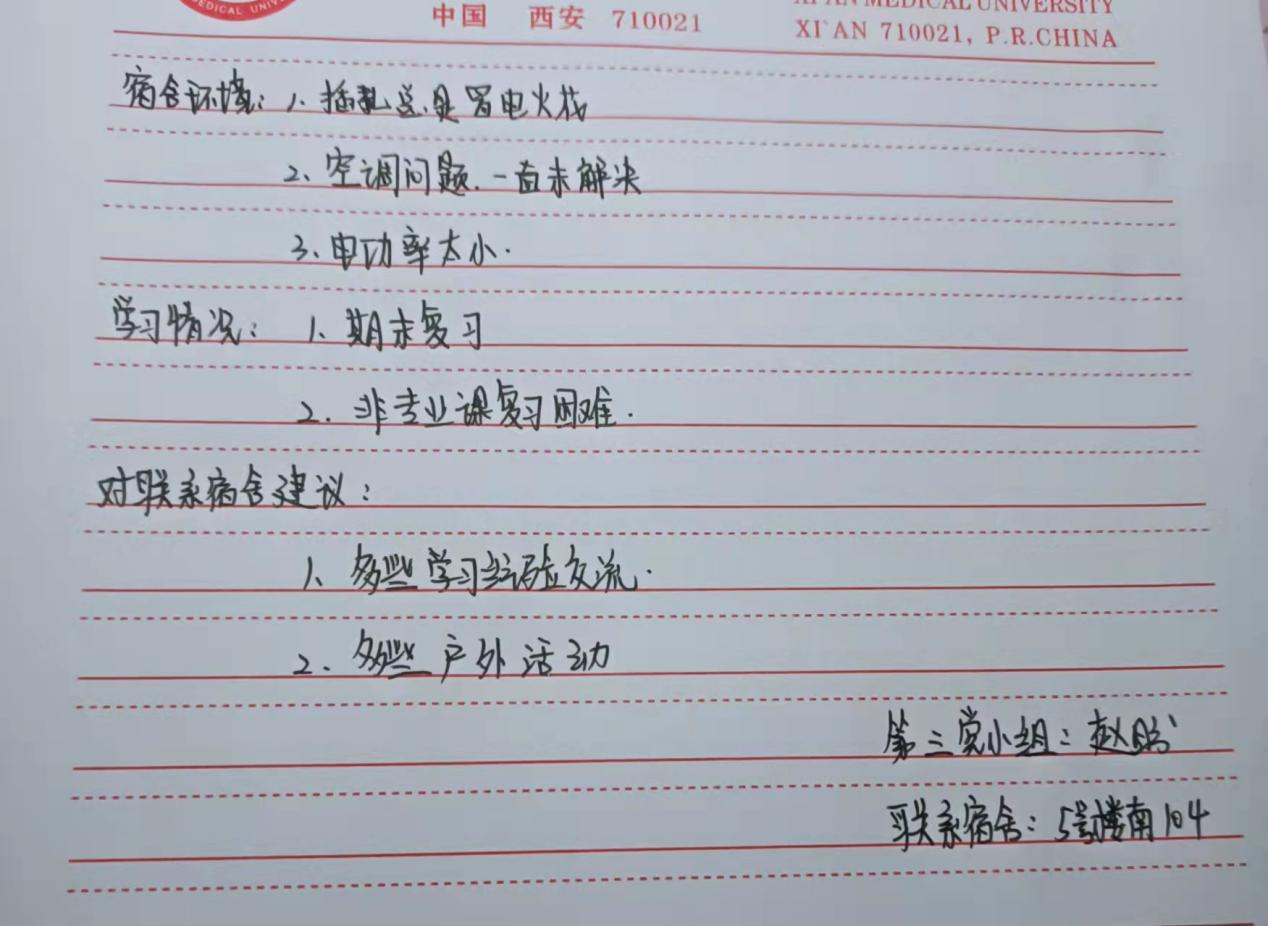 MEDICAL UNIV
中国 西安 710021
XI'AN MEDICAL UNIVERSITY
XI'AN 710021, P.R.CHINA
宿舍环境：1、插孔总是冒电火花
2、空调问题一直未解决
3、电功率太小.
学习情况：1、期末复习
2、非专业课复习困难.
对联系宿舍建议：
1、多些学习经验交流.
2、多些户外活动
第三党小组：赵
联系宿舍：5号楼南104